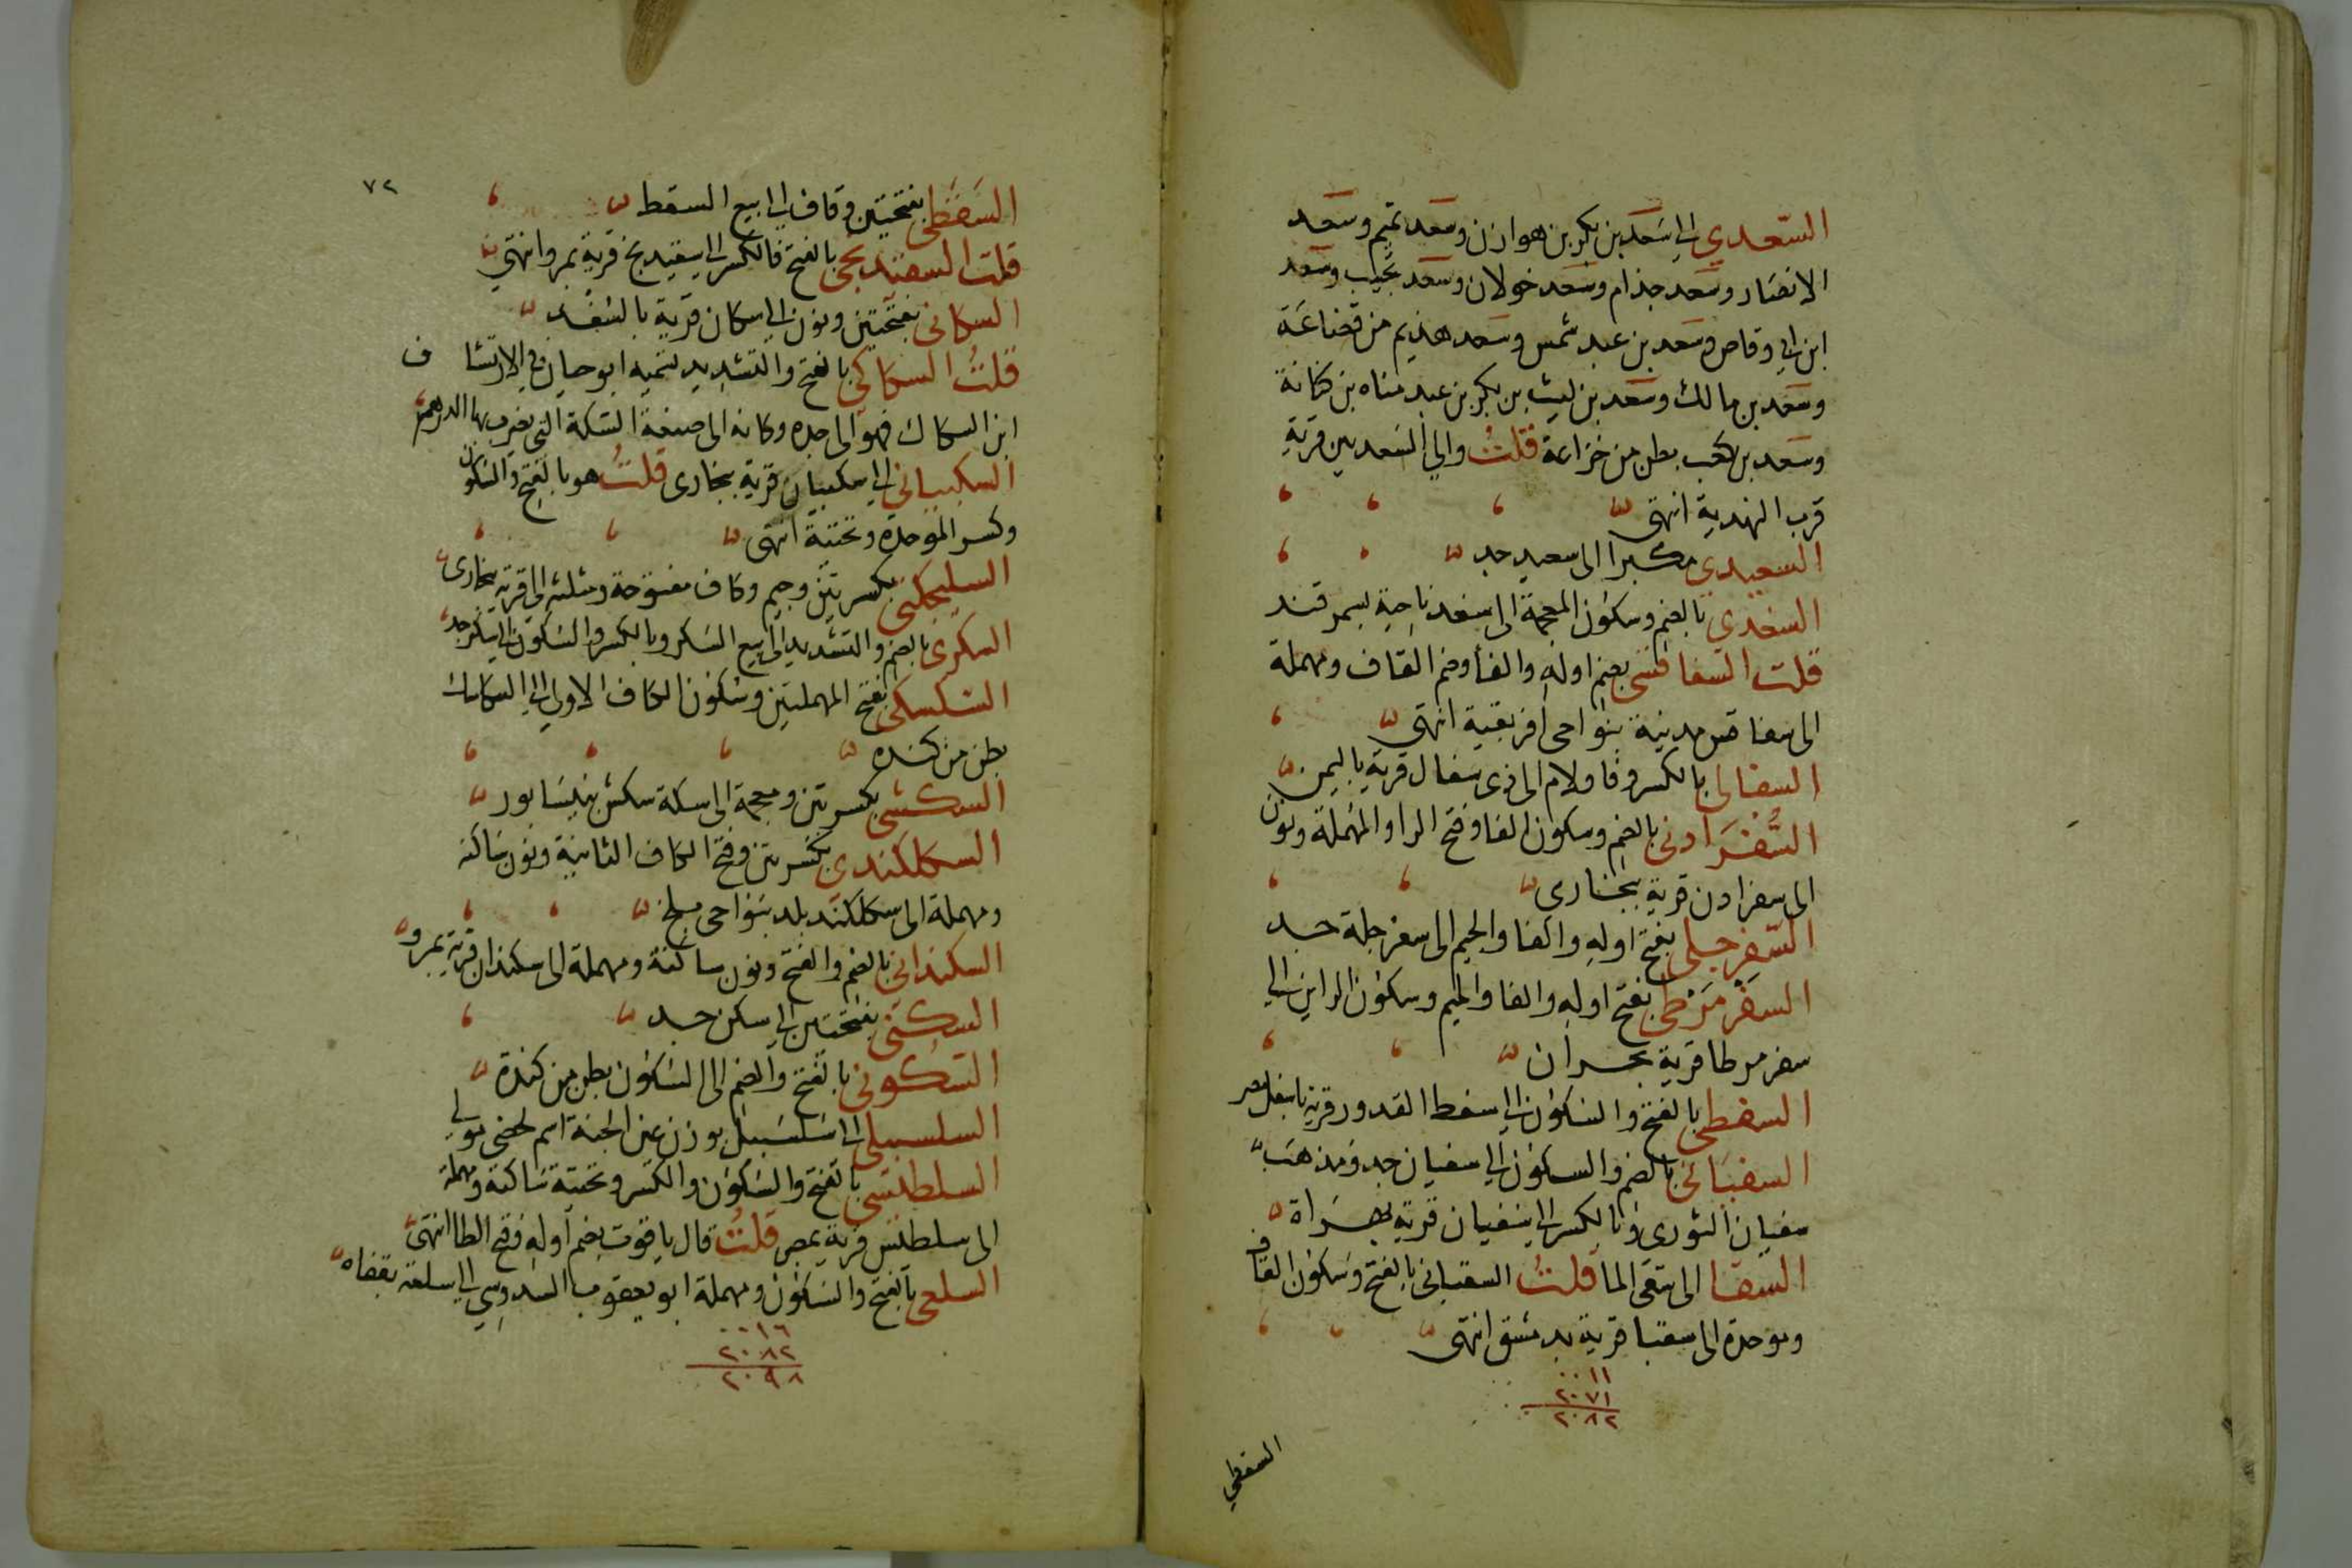 السعدي الى سعد بن بكر بن هوازن وسعد تميم وسعد
الانصار وسعد جذام وسعد خولان وسعد تجيب وسعد
ابن ابي وقاص وسعد بن عبد شمس وسعد هذيم من قضاعة
وسعد بن مالك وسعد بن ليث بن بكر بن عبد مناه بن كنانة
وسعد بن كعب بطن من خزاعة قلت والى السعديين قرية
قرب المهدية انتهى
السعيدي مكبرا الى سعيد جد
السغدي بالضم وسكون المعجمة الى سغد ناحية بسمرقند
قلت السفاقسى بضم اوله والفا وضم القاف ومهملة
الى سفاقس مدينة بنواحى افريقية انتهى
السفالى بالكسر وفا ولام الى ذى سفال قرية باليمن
السفرادنى بالضم وسكون الفا وفتح الرا والمهملة ونون
الى سفرادن قرية ببخارى
السفرجلى بفتح اوله والفا والجيم الى سفرجلة جد
السفرمرطى بفتح اوله والفا والميم وسكون الراين الى
سفر مرطا قرية بحران
السفطى بالفتح والسكون الى سفط القدور قرية باسفل مصر
السفيانى بالضم والسكون الى سفيان جد ومذهب
سفيان الثورى وبالكسر الى سفيان قرية بهراة
السقا الى سقى الما قلت السقبانى بالفتح وسكون القاف
وموحدة الى سقبا قرية بدمشق انتهى
٠٠١١
٢٠٧١
٢٠٨٢
السقطي
٧٢
السقطى بفتحتين وقاف الى بيع السقط
قلت السفنديجى بالفتح فالكسر الى قرية بمرو انتهى
السكانى بفتحتين ونون الى سكان قرية بالسغد
قلت السكاكى بالفتح والتشديد نسبه ابو حيان فى الارتشاف
ابن السكاك فهو الى جده وكانه الى صنعة السكة التى يضرب بها الدرهم
السكبيانى الى سكبيان قرية ببخارى قلت هو بالفتح والسكون
وكسر الموحدة وتحتية انتهى
السكجكنى بكسرتين وجيم وكاف مفتوحة ومثلثه الى قرية ببخارى
السكرى بالضم والتشديد الى بيع السكر وبالكسر والسكون الى سكر جد
السكسكى بفتح المهملتين وسكون الكاف الاولى الى السكاسك
بطن من كنده
السكشى بكسرتين ومعجمة الى سكة سكش بنيسابور
السكلكندى بكسرتين وفتح الكاف الثانية ونون ساكنه
ومهملة الى سكلكند بلد بنواحى بلخ
السكندانى بالضم والفتح ونون ساكنة ومهملة الى سكندان قرية بمرو
السكنى بفتحتين الى سكن جد
السكونى بالفتح والضم الى السكون بطن من كندة
السلسبيلى الى سلسبيل بوزن عين الجنة اسم لخصى مولى
السلطيسى بالفتح والسكون والكسر وتحتية ساكنة ومهملة
الى سلطيس قرية بمصر قلت قال ياقوت بضم اوله وفتح الطا انتهى
السلعى بالفتح والسكون ومهملة ابو يعقوب السدوسى الى سلعة بقفاه
٠٠١٦
٢٠٨٢
٢٠٩٨